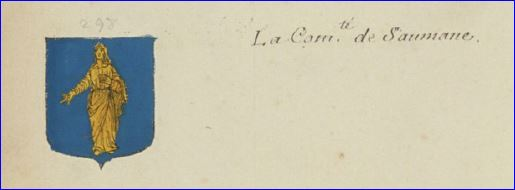 298
La Com.té de Saumane.